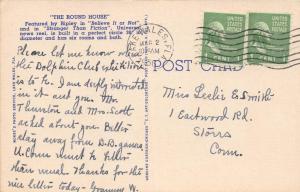 "THE ROUND HOUSE"
Featured by Ripley in "Believe It or Not"
and in "Stranger Than Fiction", Universal
news reel, is built in a perfect circle
diameter and has six rooms and bath.
Please let me know when
the Dolphin Club exhibition
is to be. I am deeply interested
in it and you. Mrs.
Thurston and Mrs. Scott
asked about you. Better
stay away from B.B. games
U. Conn must be better
than usual. Thanks for the
nice letter today - Granny W.
LAKE WALES, FLA
MAR 2
PM
POST CARD
UNITED STATES
POSTAGE
1 CENT
UNITED STATES
POSTAGE
1 CENT
Miss Leslie E. Smith
1 Eastwood Rd.
Storrs
Conn.